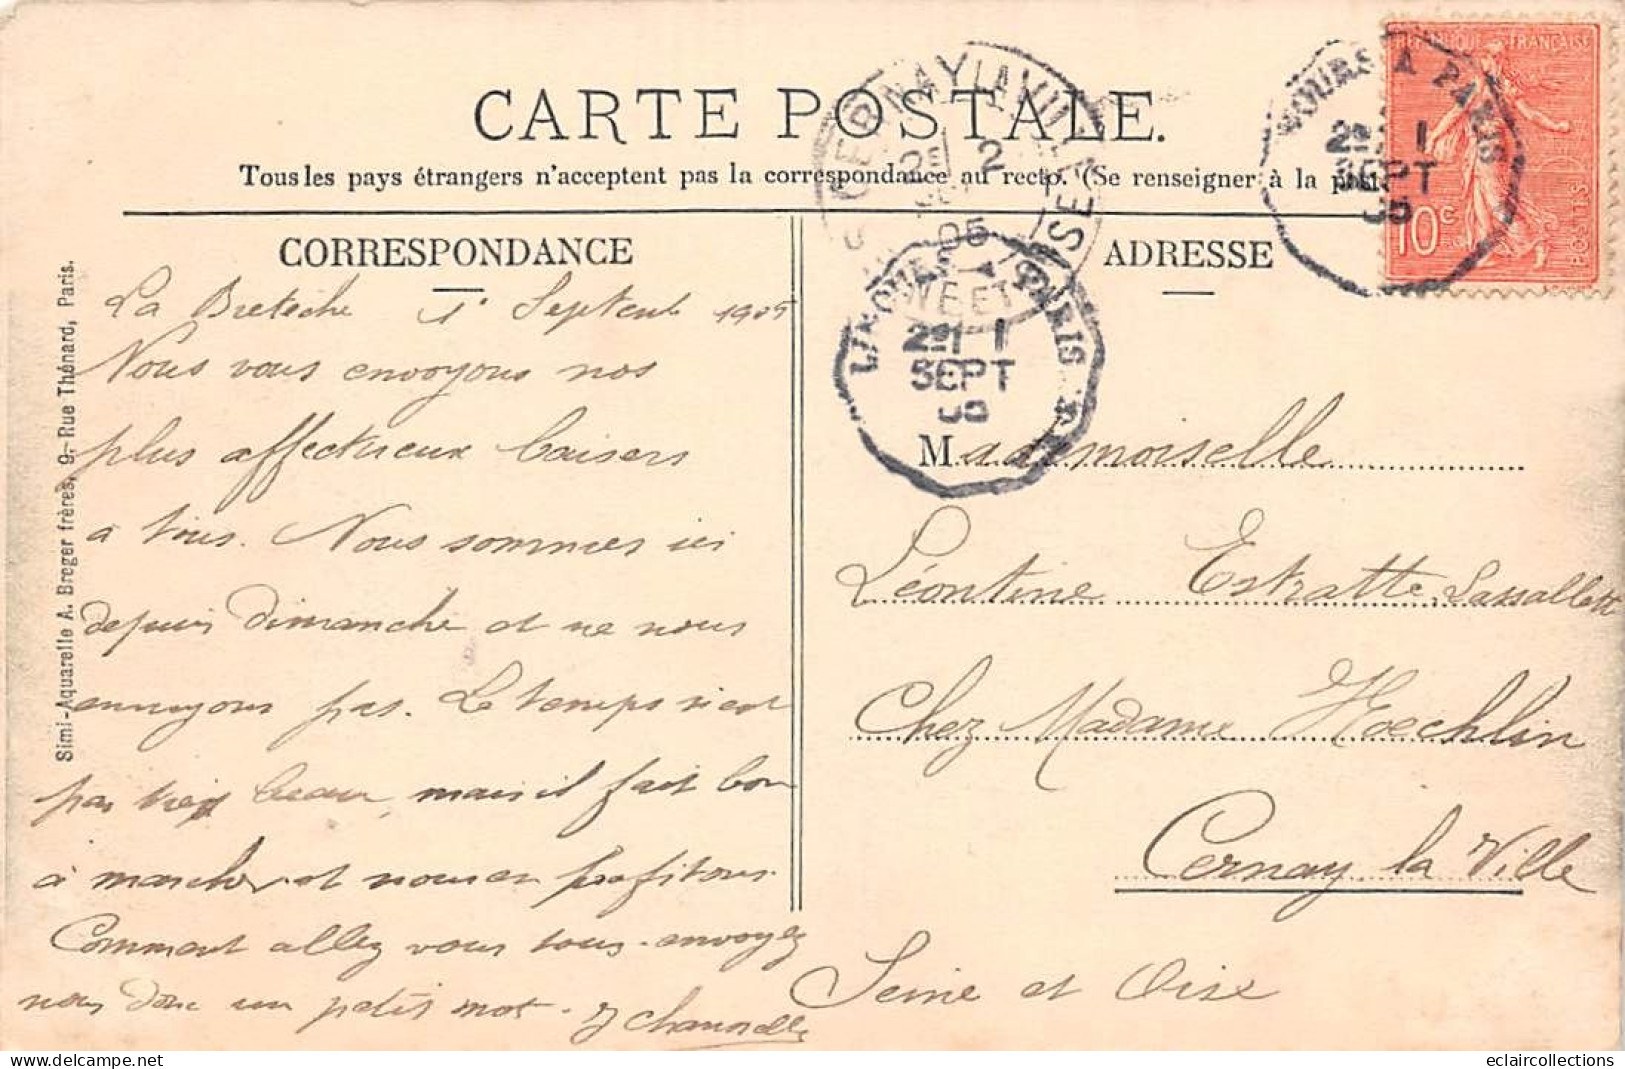 CARTE POSTALE.
Tous les pays étrangers n'acceptent pas la correspondance au recto. (Se renseigner à la
CORRESPONDANCE
La Bretèche 1r Septemb 1905
Nous vous envoyons nos
plus affectueux baisers
a tous. Nous sommes ici
depuis dimanche et ne nous
ennuyons pas. Le temps n'est
pas très beau, mais il fait bon
à marcher et nous en profitons.
Comment allez vous tous. envoyez
nous donc un petit mot.
Simi-Aquarelle A. Breger frères, 9-Rue Thénard, Paris.
CERNAY LA VILLE
2
05
SEINE ET
PARIS
2E 1
SEPT
05
TOURS A PARIS
2E 1
SEPT
05
REPUBLIQUE FRANÇAISE
POSTES
10c
ADRESSE
Mademoiselle
Léontine Estratte Lassallette
Chez Madame Hoechlin
Cernay la Ville
Seine et Oise
eclaircollections